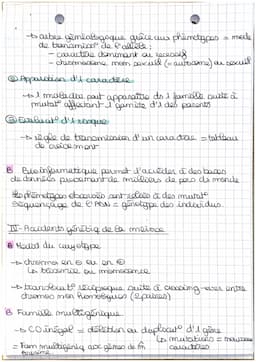 ↳ arbre généalogique grâce aux phénotypes = mode
de transmiss° de l'allèle :
- caractère dominant ou récessif
- chromosome non sexuel (= autosome) ou sexuel
② Apparition d'1 caractère
↳ 1 maladie peut apparaître ds 1 famille suite à 1
mutat° affectant 1 gamète d'1 des parents
③ Evaluat° d'1 risque
↳ règle de transmission d'un caractère = tableau
de croisement
B Bioinformatique permet d'accéder à des bases
de données provenant de milliers de pers du monde
les phénotypes observés sont reliés à des mutat°
Séquençage de l'ADN = génotype des individus
IV- Accidents génétiq de la méiose
A Modif du caryotype
↳ chromos en ⊕ ou en ⊖
↳ trisomie ou monosomie
↳ translocat° réciproque suite à crossing-over entre
chromos non homologues (2 paires)
B Famille multigénique
↳ CO inégal = délétion ou duplicat° d'1 gène
↳ mutations = nouveaux
caractères
= Fam multigéniq aux gènes de fn